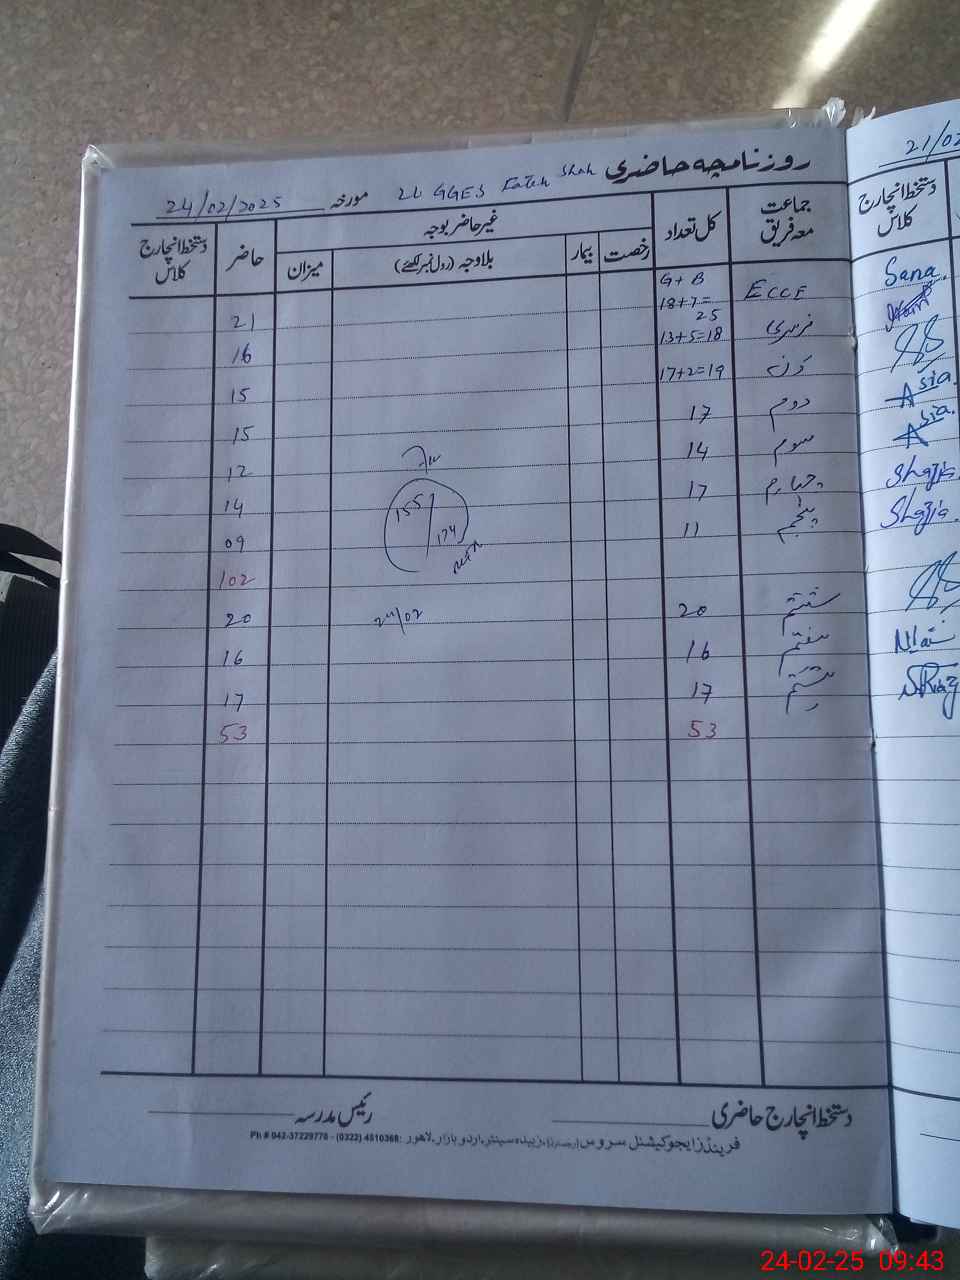 روزنامچہ حاضری GGES Fateh Shah مورخہ 24/02/2025
جماعت معہ فریق کل تعداد غیر حاضر بوجہ حاضر دستخط انچارج کلاس
رخصت بیمار بلاوجہ (رول نمبر لکھئے) میزان
ECCE G+B 18+7=25 21
نرسری 13+5=18 16
ون 17+2=19 15
دوم 17 15
سوم 14 12
چہارم 17 14
پنجم 11 09
102
155/174
ششم 20 20
24/02
ہفتم 16 16
ہشتم 17 17
53 53
دستخط انچارج حاضری رئیس مدرسہ
فرینڈز ایجوکیشنل سروس زبیدہ سینٹر، اردو بازار، لاہور Ph # 042-37229778 - (0322) 4810368:
21/02
دستخط انچارج کلاس
Sana.
Asia.
Asia.
Shazia.
Shazia.
24-02-25 09:43